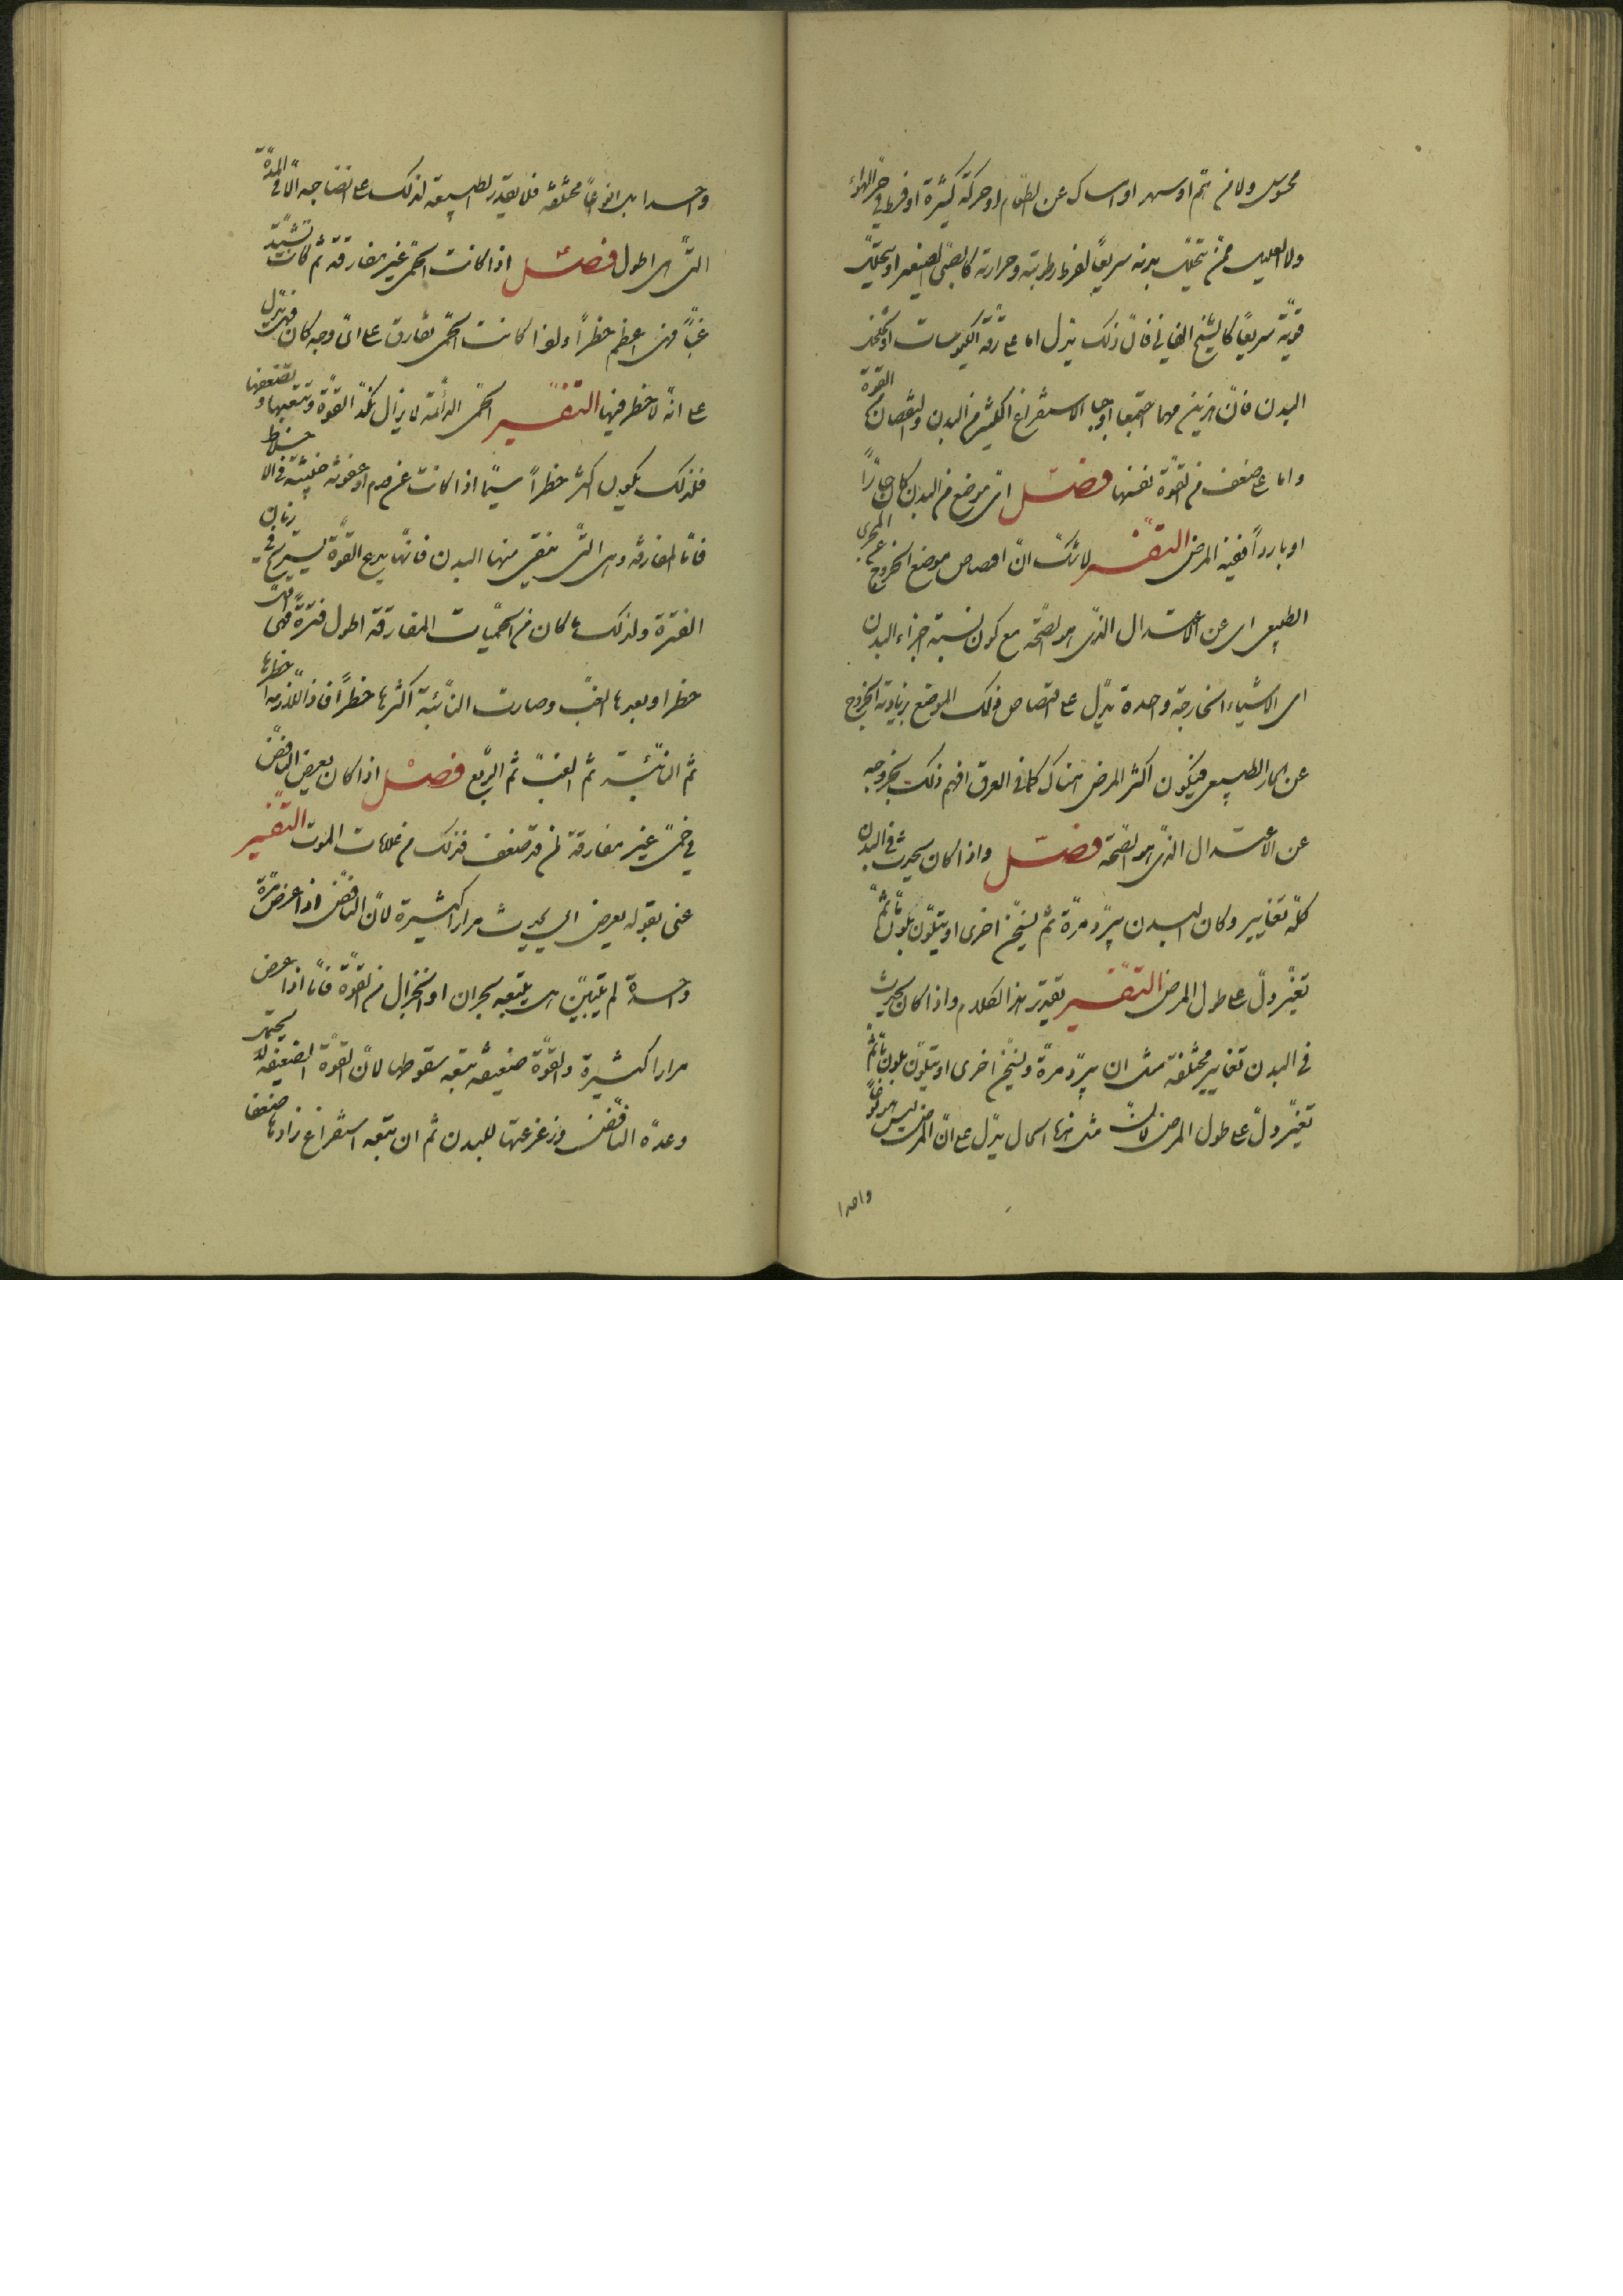 محسوس ولا من هم او سهر او امساك عن الطعام او حركة كثيرة او فرط في حر الهواء
ولا العليل ممن يتحلل بدنه سريعًا لفرط رطوبته وحرارته كالصبي الصغير او يتحلل
قوته سريعًا كالشيخ الفاني فان ذلك يدل اما على رقة الكيموسات او تخلخل
البدن فان هذين مهما اجتمعا اوجبا الاستفراغ الكثير من البدن ولنقصان القوة
واما على ضعف من القوة نفسها فصل اي موضع من البدن كان حارًا
او باردًا ففيه المرض التفسير لا شك ان اختصاص موضع الخروج عن المجرى
الطبيعي اي عن الاعتدال الذي هو الصحة مع كون نسبة اجزاء البدن
الى الاشياء الخارجة واحدة يدل على اختصاص ذلك الموضع بزيادة الخروج
عن المجار الطبيعي فيكون اكثر المرض هناك كما في العرق افهم ذلك بخروجه
عن الاعتدال الذي هو الصحة فصل واذا كان يحدث في البدن
كله تغايير وكان البدن يبرد مرة ثم يسخن اخرى او يتلون بلون ما ثم
تغير دل على طول المرض التفسير تقدير هذا الكلام واذا كان يحدث
في البدن تغايير مختلفة مثل ان يبرد مرة ويسخن اخرى او يتلون بلون ما ثم
تغير دل على طول المرض لان مثل هذا الحال يدل على ان المرض ليس هو خلطًا
واحدا
واحدا بل انواعًا مختلفة فلا يقدر الطبيعة لذلك على انضاجه الا في المدة
التي هي اطول فصل اذا كانت الحمى غير مفارقة ثم كانت تشتد
غبًا فهي اعظم خطرًا ولذا كانت الحمى تفارق على اي وجه كان فهي تدل
على انه لا خطر فيها التفسير الحمى الدائمة لا يزال تكد القوة وتتعبها وتضعفها
فلذلك يكون اكثر خطرًا سيما اذا كانت عن ورم او عفونة خبيثة في الاخلاط
فاما المفارقة وهي التي ينقى منها البدن فانها يدع القوة يستريح في زمان
الفترة ولذلك ما كان من الحميات المفارقة اطول فترة فهي اقل
خطرا وبعدها الغب وصارت النائبة اكثرها خطرًا فاذا اللازمة اخطرها
ثم النائبة ثم الغب ثم الربع فصل اذا كان يعرض النافض
في حمى غير مفارقة لمن قد ضعف فذلك من علامات الموت التفسير
عنى بقوله يعرض اي يحدث مرارا كثيرة لان النافض اذا عرض مرة
واحدة لم يتبين هل يتبعه بحران او انخزال من القوة فاما اذا عرض
مرارا كثيرة والقوة ضعيفة يتبعه سقوطها لان القوة الضعيفة لا يحتمل
وعدة النافض وزعزعتها للبدن ثم ان يتبعه استفراغ زادها ضعفا